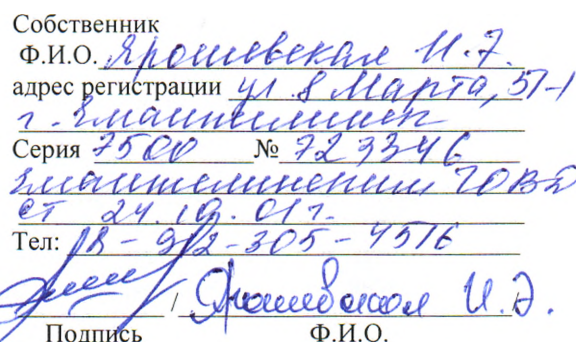 Собственник
Ф.И.О. Ярошевская И.Э.
адрес регистрации ул 8 Марта, 51-1
г. Еманжелинск
Серия 7500 № 723346
Еманжелинским ГОВД
от 24.10.01г.
Тел: 8-912-305-4516
/ Ярошевская И.Э.
Подпись Ф.И.О.